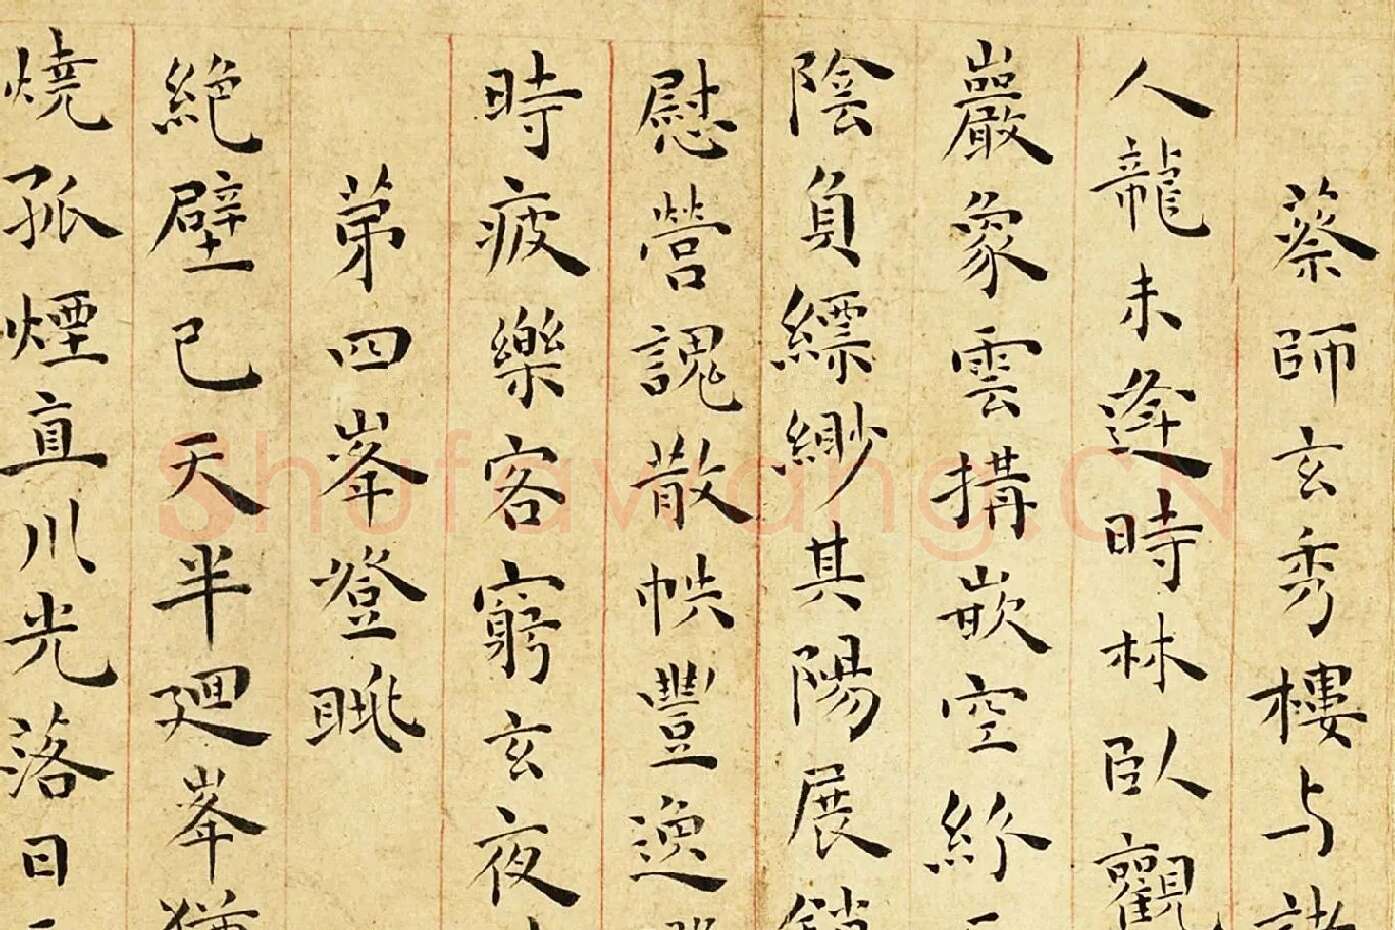 蔡師玄秀樓与
人龍未逢時林臥觀
巖象雲搆嵌空紛
陰負縹緲其陽展
慰營謂散帙豐逸
時疲樂客窮玄夜
苐四峯登眺
絕壁已天半廻峯猶
燒孤煙直川光落日
Shufawang.CN